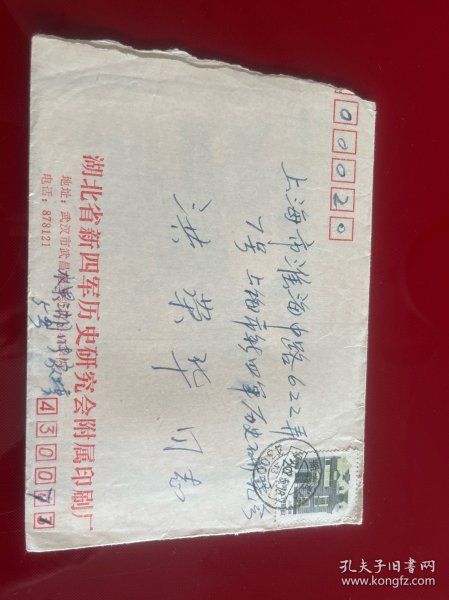 200000
上海市淮海中路622弄
7号上海市新四军历史研究会
洪荣华 同志
湖北省新四军历史研究会附属印刷厂
地址：武汉市武昌
电话：878121
430071
孔夫子旧书网
www.kongfz.com